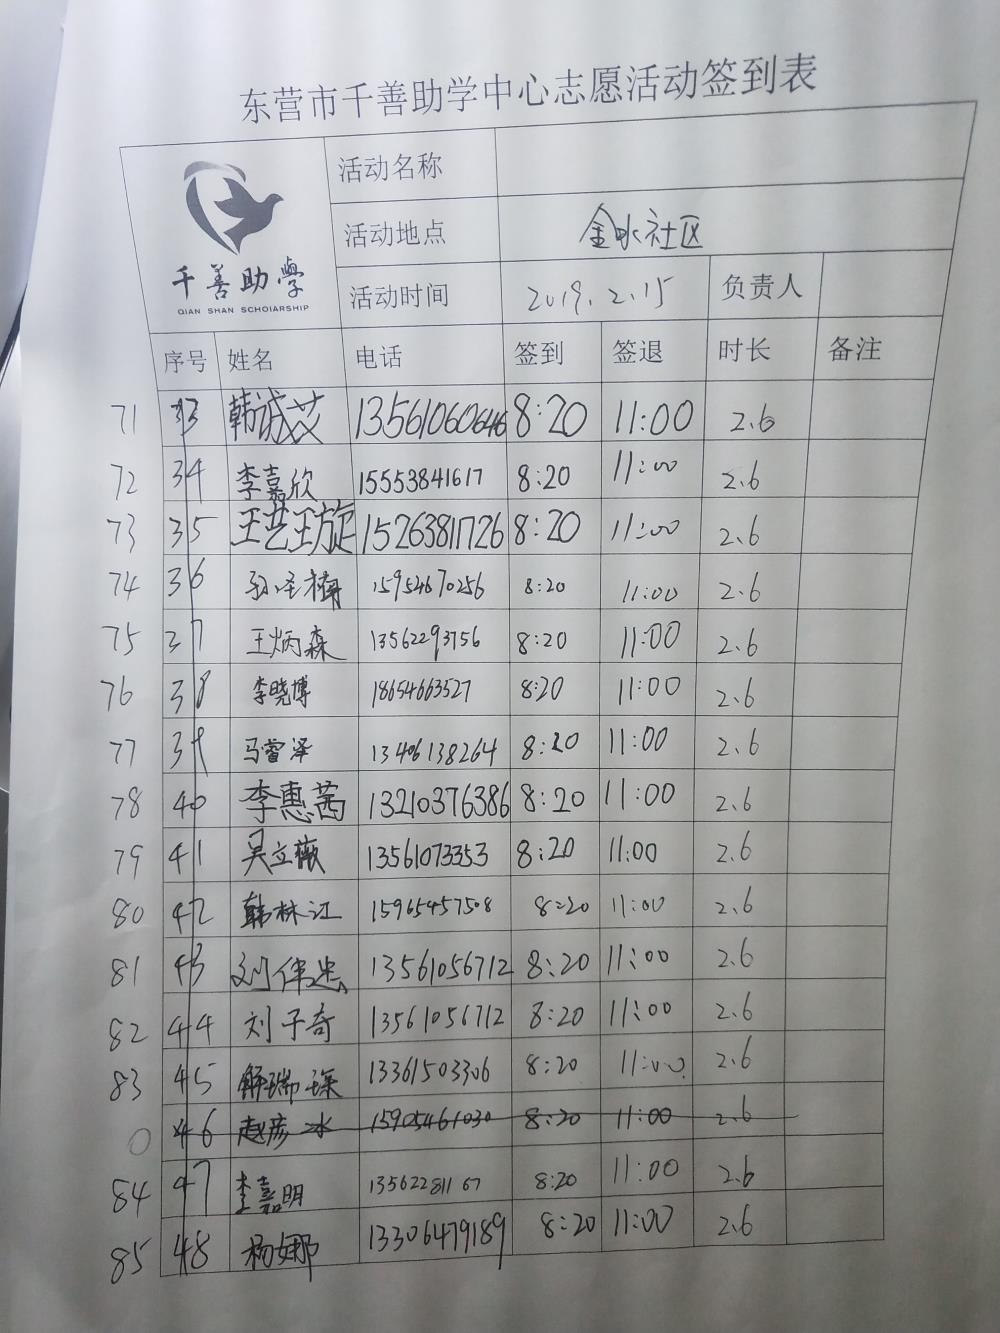 东营市千善助学中心志愿活动签到表
千善助學
QIAN SHAN SCHOIARSHIP
活动名称
活动地点 金水社区
活动时间 2019.2.15 负责人
序号 姓名 电话 签到 签退 时长 备注
71 33 韩诚艾 13561060646 8:20 11:00 2.6
72 34 李嘉欣 15553841617 8:20 11:00 2.6
73 35 王艺璇 15263811726 8:20 11:00 2.6
74 36 15954670256 8:20 11:00 2.6
75 37 王炳森 13562293756 8:20 11:00 2.6
76 38 李晓博 18654663527 8:20 11:00 2.6
77 39 13406138264 8:20 11:00 2.6
78 40 李惠茜 13210376386 8:20 11:00 2.6
79 41 吴立薇 13561073353 8:20 11:00 2.6
80 42 韩林江 15965457508 8:20 11:00 2.6
81 43 刘伟忠 13561056712 8:20 11:00 2.6
82 44 刘子奇 13561056712 8:20 11:00 2.6
83 45 解瑞琛 13361503306 8:20 11:00 2.6
0 46 赵彦冰 15905461030 8:20 11:00 2.6
84 47 李嘉明 13562281167 8:20 11:00 2.6
85 48 杨娜 13306479189 8:20 11:00 2.6